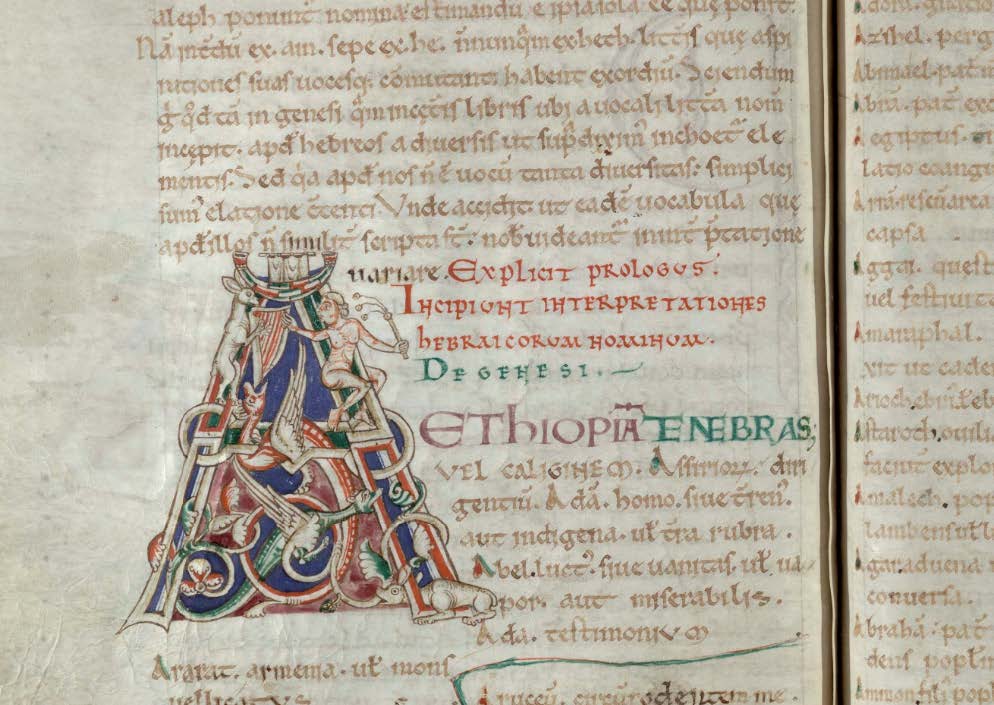 aleph ponunt nomina estimandū ē ipsius
Nā int̄dū ex. am. sepe ex. he. n̄nunqͣm ex heth. litt̄is que aspi
rationes suas uocesq; cōmutant habent exordiū. Sciendum
gͦ qͦd tā in genesi qͣm in cet̄is libris ubi a uocali litt̄a nom̄
incepit. apd̄ hebreos a diuersis ut supͣ diximꝰ inchoetͬ ele
mentis. Sed qͥa apd̄ nos n̄ ē uocū tanta diuersitas: simplici
sumꝰ elatione c̄tenti. Vnde accidit ut eadē uocabula quę
apd̄ illos n̄ simili t̄ scripta s̄t: nob̄ uideantͬ in int̄p̄tatione
uariare. Explicit prologus.
Incipiunt interpretationes
hebraicorum nominum.
De genesi.
A ETHIOPIĀ TENEBRAS;
VEL CALIGINEM. Assiriorꝝ. diri
gentiū. Adā. homo. siue t̄renꝰ.
aut indigena. ul̄ t̄ra rubra.
Abel. luctꝰ. siue uanitas. ul̄ ua
por. aut miserabilis.
Ada. testimoniuM
Ararat. armenia. ul̄ mons
uellicatus
Azahel. perg
Abimael. pat̄ m
Abrā. pat̄ exc
Aegiptus.
latio
capsa
Aggai. quest
uel festiuita
Amaraphal.
xit ut cader
Astaroth. ouilia
faciūt explo
Amalech. pop
lambens ul̄ l
Agar aduena
conuersa.
Abrahā. pat̄
dens popl̄m
Ammon fili popl̄